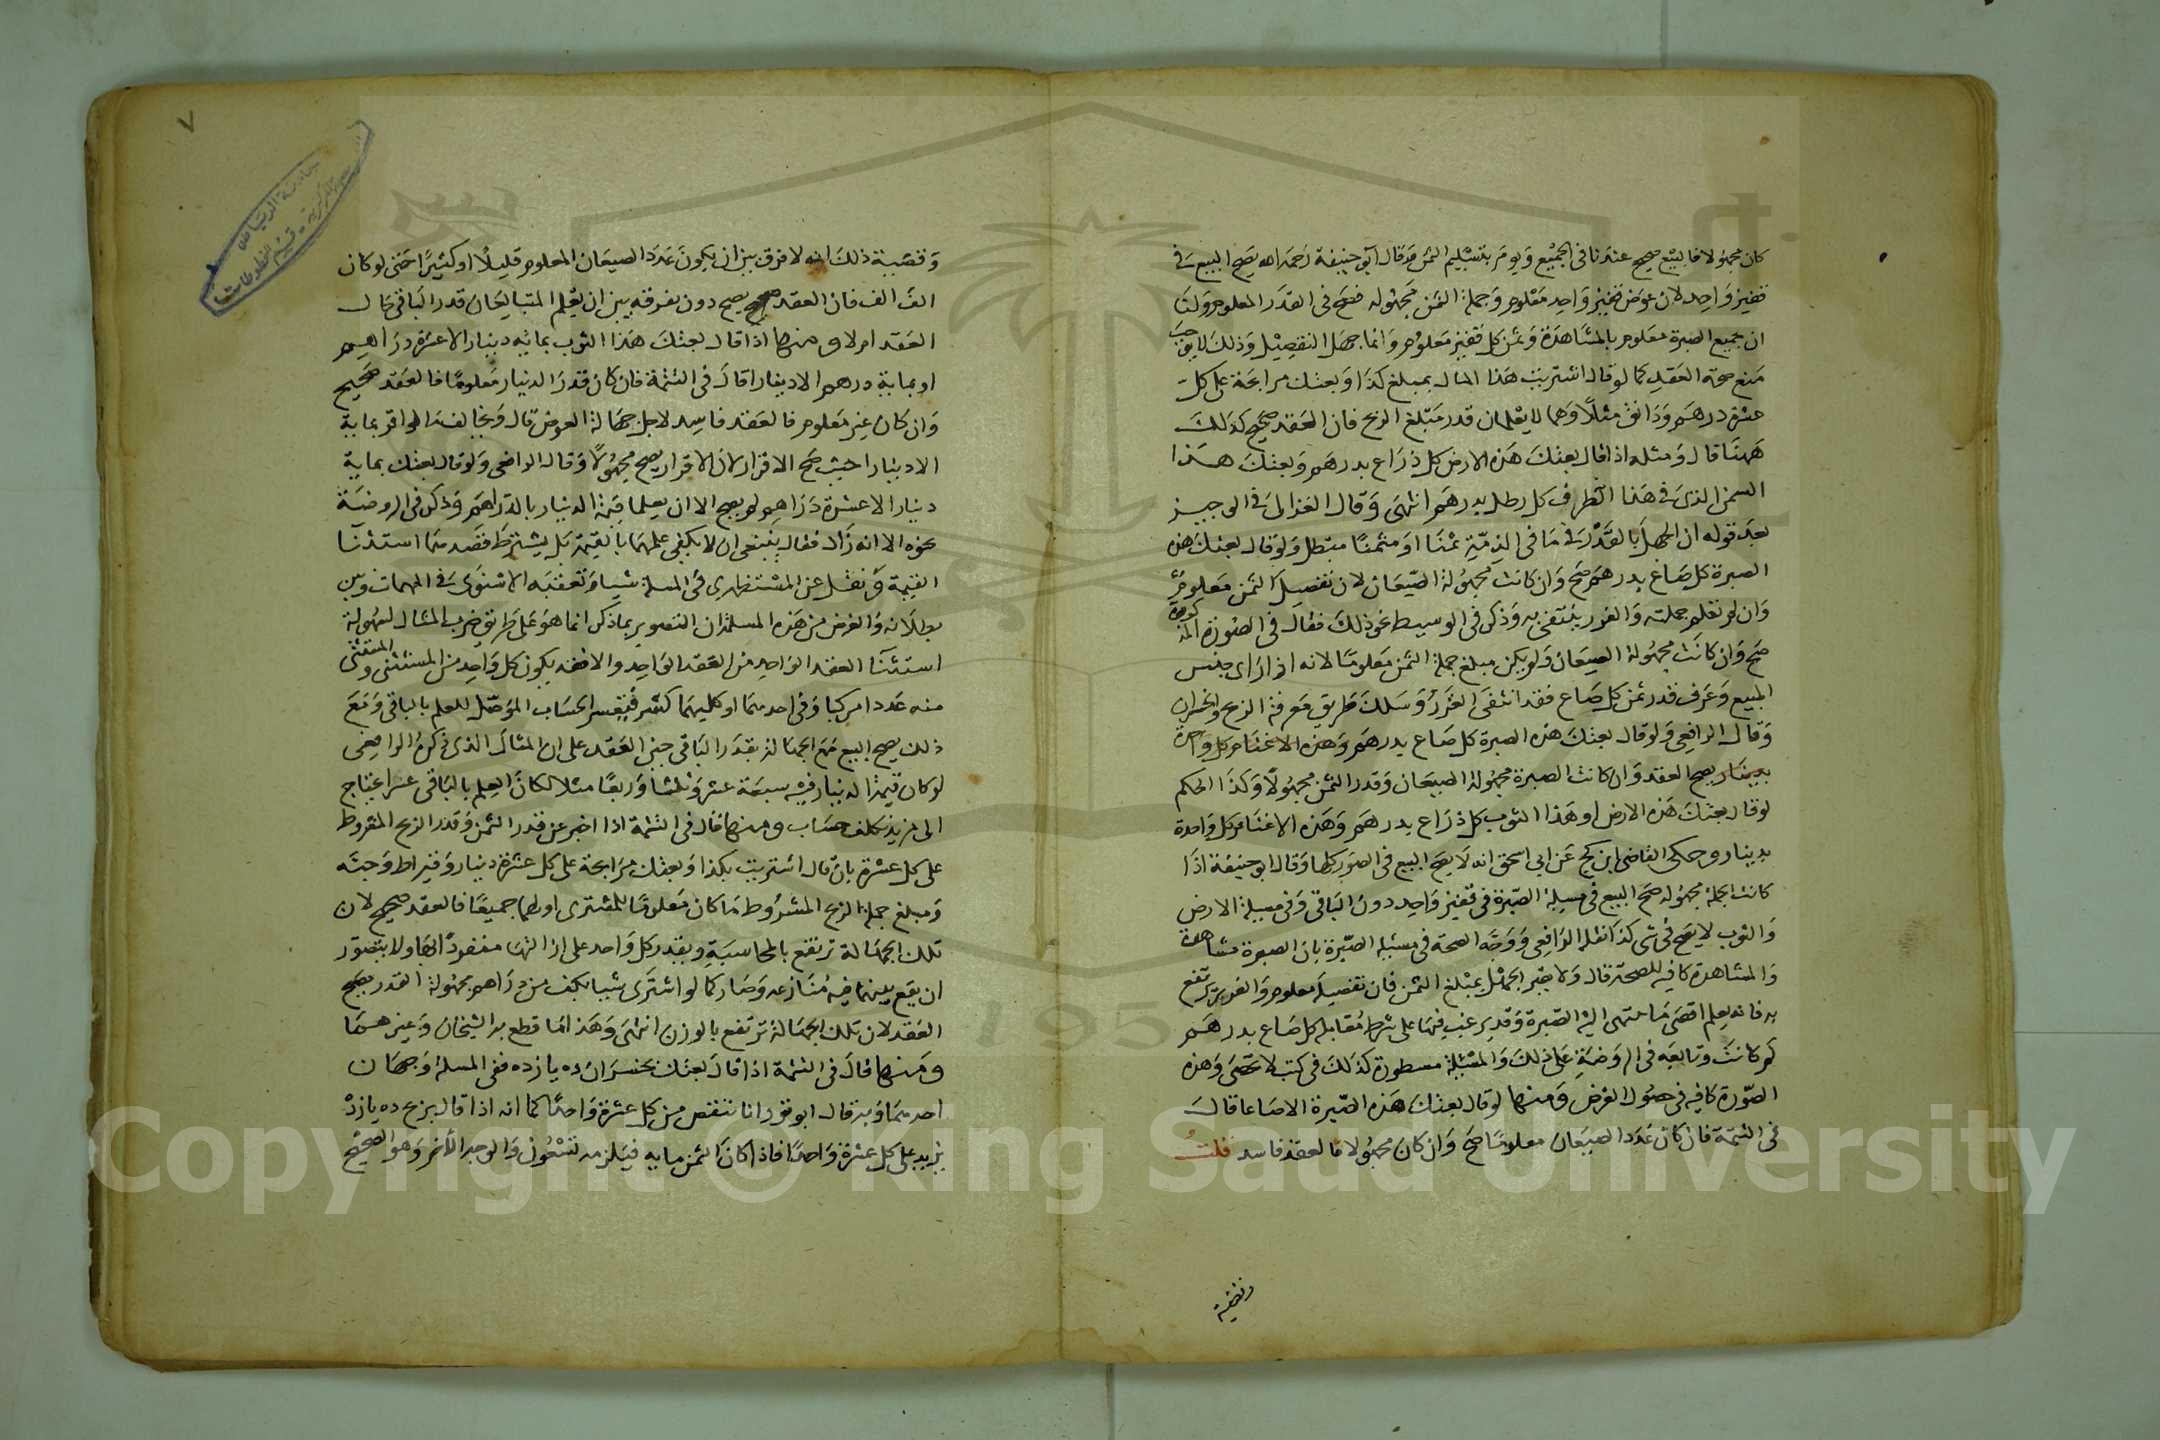 كان مجهولا فالبيع صحيح عندنا في الجميع ويومر بتسليم الثمن وقال ابو حنيفة رحمه الله يصح البيع في
قفيز واحد لان عوض قفيز واحد معلوم وجملة الثمن مجهولة فصح في القدر المعلوم ولنا
ان جميع الصبرة معلوم بالمشاهدة وثمن كل قفيز معلوم وانما جهل التفصيل وذلك لا يوجب
منع صحة العقد كما لو قال اشتريت هذا المال بمبلغ كذا وبعتك مرابحة على كل
عشرة درهم ودانق مثلا وهما لا يعلمان قدر مبلغ الربح فان العقد صحيح كذلك
ههنا قال ومثله اذا قال بعتك هذه الارض كل ذراع بدرهم وبعتك هذا
السمن الذي في هذا الظرف كل رطل بدرهم انتهى وقال الغزالي في الوجيز
بعد قوله ان الجهل بالقدر في ما في الذمة ثمنا او مثمنا مبطل ولو قال بعتك هذه
الصبرة كل صاع بدرهم صح وان كانت مجهولة الصيعان لان تفصيل الثمن معلوم
وان لم تعلم جملته والغرر ينتفي به وذكر في الوسيط نحو ذلك فقال في الصورة المذكورة
صح وان كانت مجهولة الصيعان ولم يكن مبلغ جملة الثمن معلوما لانه اذا راى جنس
المبيع وعرف قدر ثمن كل صاع فقد انتفى الغرر وسلك طريق معرفة الربح والخسران
وقال الرافعي ولو قال بعتك هذه الصبرة كل صاع بدرهم وهذه الاغنام كل واحدة
بدينار يصح العقد وان كانت الصبرة مجهولة الصيعان وقدر الثمن مجهولا وكذا الحكم
لو قال بعتك هذه الارض او هذا الثوب كل ذراع بدرهم وهذه الاغنام كل واحدة
بدينار وحكى القاضي ابن كج عن ابي اسحق انه لا يصح البيع في الصور كلها وقال ابو حنيفة اذا
كانت الجملة مجهولة صح البيع في مسيلة الصبرة في قفيز واحد دون الباقي وفي مسيلة الارض
والثوب لا يصح في شي كذا نقله الرافعي ووجه الصحة في مسئلة الصبرة بان الصبرة مشاهدة
والمشاهدة كافية للصحة قال ولا يضر الجهل بمبلغ الثمن فان تفصيله معلوم والغرر يرتفع
به فانه يعلم اقصى ما تنتهي اليه الصبرة وقد يرغب فيها على شرط مقابلة كل صاع بدرهم
كم كانت وتابعه في الروضة على ذلك والمسئلة مسطورة كذلك في كتب لا تحصى وهذه
الصورة كافية في حصول الغرض ومنها لو قال بعتك هذه الصبرة الا صاعا قال
في التتمة فان كان عدد الصيعان معلوما صح وان كان مجهولا فالعقد فاسد قلت
وقضية
٧
جامعة الرياض
قسم المخطوطات
وقضية ذلك انه لا فرق بين ان يكون عدد الصيعان المعلوم قليلا او كثيرا حتى لو كان
الف الف فان العقد يصح دون تفرقه بين ان يعلم المتبايعان قدر الباقي حال
العقد ام لا ومنها اذا قال بعتك هذا الثوب بماية دينار الا عشرة دراهم
او بماية درهم الا دينارا قال في التتمة فان كان قدر الدينار معلوما فالعقد صحيح
وان كان غير معلوم فالعقد فاسد لاجل جهالة العوض قال ويخالف ما لو اقر بماية
الا دينارا حيث صح الاقرار لان الاقرار يصح مجهولا وقال الرافعي ولو قال بعتك بماية
دينار الا عشرة دراهم لم يصح الا ان يعلما قيمة الدينار بالدراهم وذكر في الروضة
نحوه الا انه زاد فقال ينبغي ان لا يكفي علمهما بالقيمة بل يشترط قصدهما استثنا
القيمة ونقل عن المستظهري في المسلة شيا وتعقبه الاسنوي في المهمات وبين
بطلانه والغرض من هذه المسلة ان التصوير بما ذكر انما هو على طريق ضرب المثال لسهولة
استثنا العقد الواحد من العقد الواحد والا فقد يكون كل واحد من المستثنى والمستثنى
منه عددا مركبا وفي احدهما او كليهما كسر فيعسر الحساب الموصل للعلم بالباقي ومع
ذلك يصح البيع مع الجهالة بقدر الباقي حين العقد على ان المثال الذي ذكره الرافعي
لو كان قيمة الدينار فيه سبعة عشر وثلثا وربعا مثلا لكان العلم بالباقي عسرا يحتاج
الى مزيد تكلف حساب ومنها قال في التتمة اذا اخبر عن قدر الثمن وقدر الربح المشروط
على كل عشرة بان قال اشتريت بكذا وبعتك مرابحة على كل عشرة دينار وقيراط وحبة
ومبلغ جملة الربح المشروط ما كان معلوما للمشتري او لهما جميعا فالعقد صحيح لان
تلك الجهالة ترتفع بالمحاسبة ويقدر كل واحد على ازالتها منفردا بها ولا يتصور
ان يقع بينهما فيه منازعه وصار كما لو اشترى شيا بكف من دراهم مجهولة القدر يصح
العقد لان تلك الجهالة ترتفع بالوزن انتهى وهذا مما قطع به الشيخان وغيرهما
ومنها قال في التتمة اذا قال بعتك بخسران ده يازده ففي المسلة وجهان
احدهما وبه قال ابو ثور انا ننقص من كل عشرة واحدا كما انه اذا قال بربح ده يازده
يزيد على كل عشرة واحدا فاذا كان الثمن مايه فيلزمه تسعون والوجه الاخر وهو الصحيح